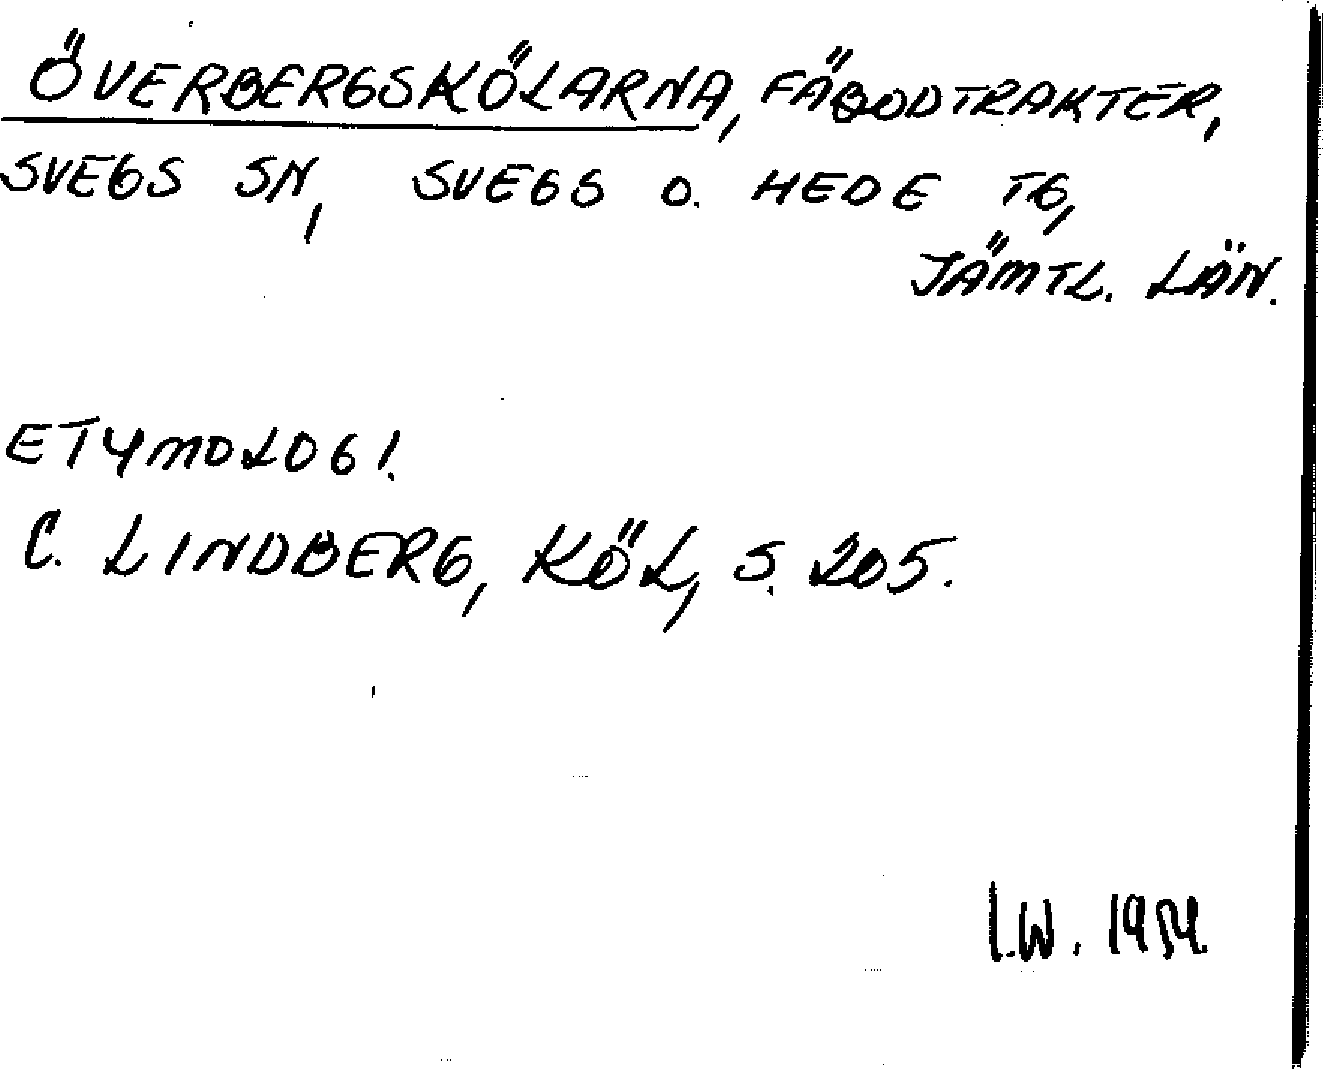 ÖVERBERGSKÖLARNA, FÄBODTRAKTER,
SVEGS SN, SVEGS O. HEDE TG,
JÄMTL. LÄN.
ETYMOLOGI.
C. LINDBERG, KÖL, S. 205.
I.W. 1954.